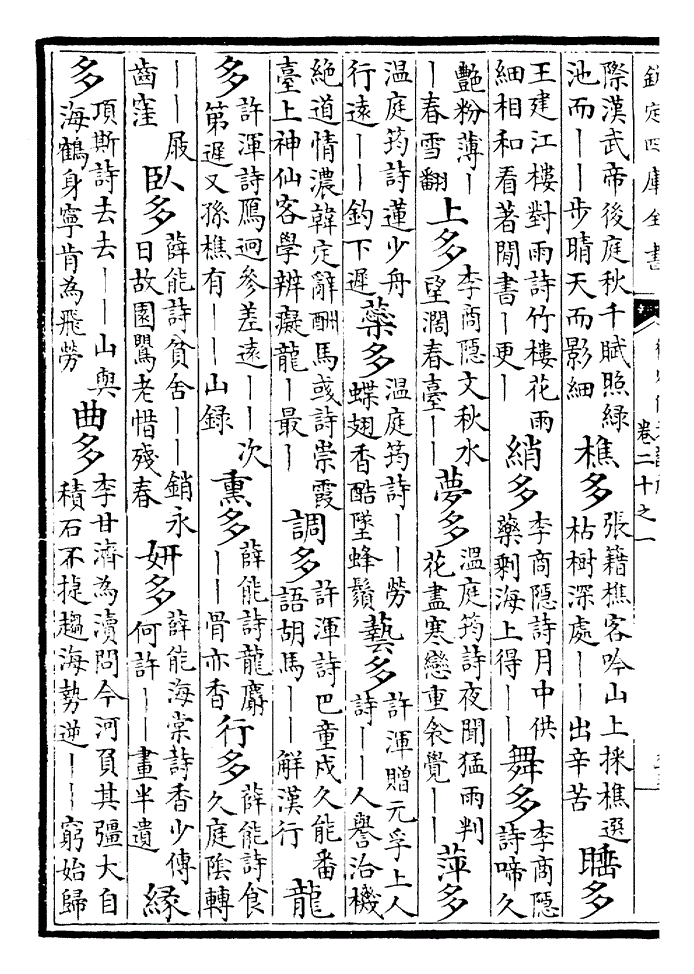 欽定四庫全書
卷二十之一
際漢武帝後庭秋千賦照綠
池而丨丨步晴天而影細
樵多
張籍樵客吟山上採樵選
枯樹深處丨丨出辛苦
睡多
王建江樓對雨詩竹樓花雨
細相和看著閒書丨更丨
綃多
李商隱詩月中供
藥剩海上得丨丨
舞多
李商隱
詩啼久
艷粉薄丨
丨春雪翻
上多
李商隱文秋水
望濶春臺丨丨
夢多
溫庭筠詩夜聞猛雨判
花盡寒戀重衾覺丨丨
萍多
溫庭筠詩蓮少舟
行遠丨丨釣下遲
蘂多
溫庭筠詩丨丨勞
蝶翅香酷墜蜂鬚
藝多
許渾贈元孚上人
詩丨丨人譽洽機
絶道情濃韓定辭酬馬彧詩崇霞
臺上神仙客學辨癡龍丨最丨
調多
許渾詩巴童戍久能番
語胡馬丨丨解漢行
龍
多
許渾詩鴈迥參差遠丨丨次
第遲又孫樵有丨丨山錄
熏多
薛能詩龍麝
丨丨骨亦香
行多
薛能詩食
久庭陰轉
丨丨屐
齒窪
臥多
薛能詩貧舍丨丨銷永
日故園鶯老惜殘春
妍多
薛能海棠詩香少傳
何許丨丨畫半遺
緣
多
項斯詩去去丨丨山與
海鶴身寧肯為飛勞
曲多
李甘濟為瀆問今河負其彊大自
積石不捷趨海勢逆丨丨窮始歸